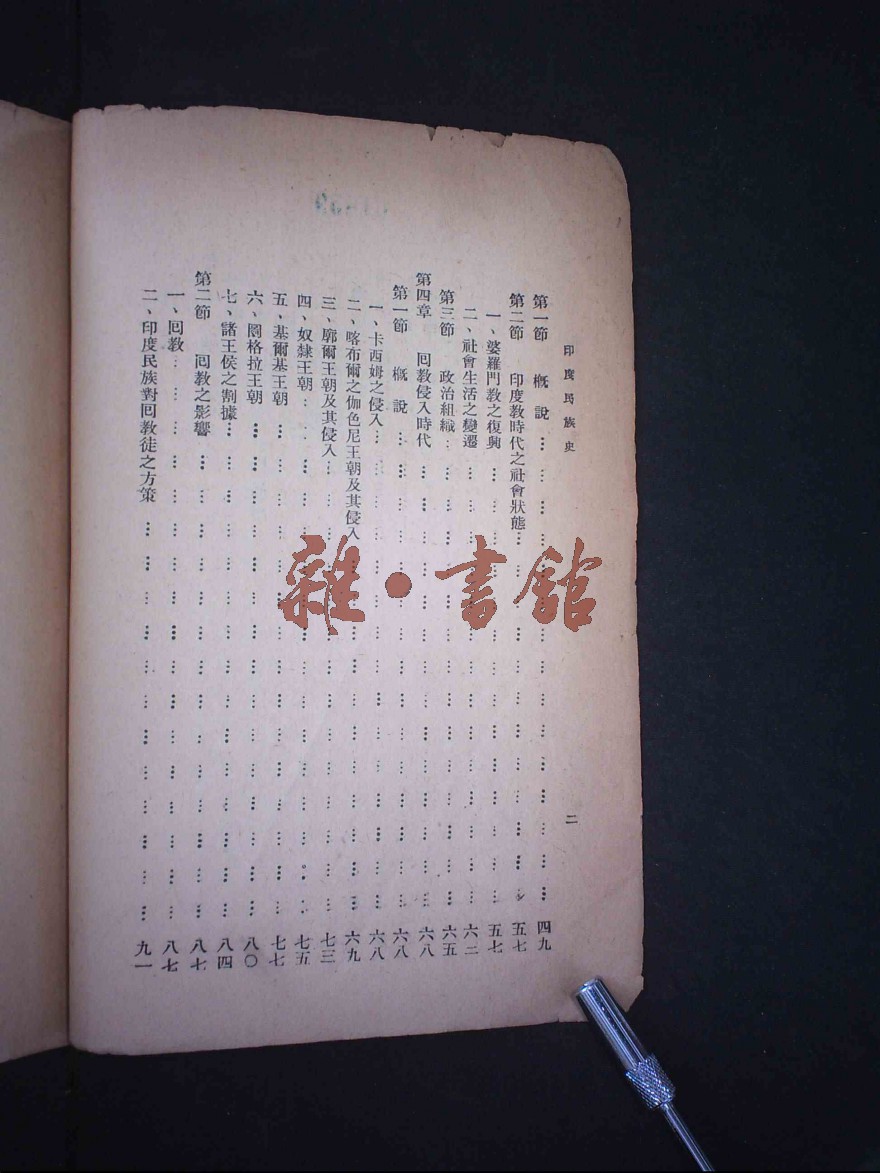 印度民族史
二
第一節 概說 四九
第二節 印度教時代之社會狀態 五七
一、婆羅門教之復興 五七
二、社會生活之變遷 六二
第三節 政治組織 六五
第四章 回教侵入時代 六八
第一節 概說 六八
一、卡西姆之侵入 六八
二、喀布爾之伽色尼王朝及其侵入 六九
三、廓爾王朝及其侵入 七三
四、奴隸王朝 七五
五、基爾基王朝 七七
六、圖格拉王朝 八〇
七、諸王侯之割據 八四
第二節 回教之影響 八七
一、回教 八七
二、印度民族對回教徒之方策 九一
雜·書館